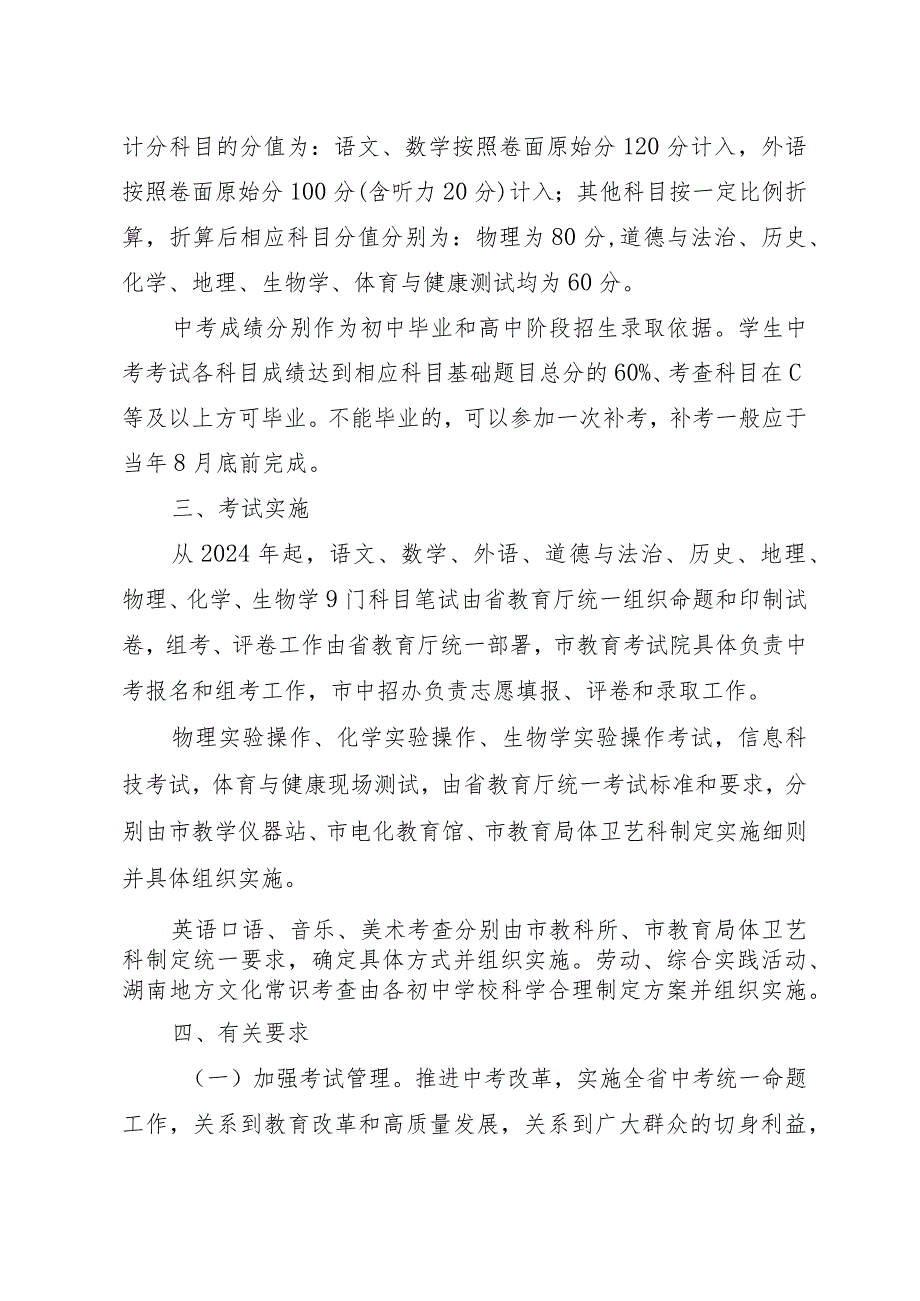 计分科目的分值为：语文、数学按照卷面原始分 120 分计入，外语
按照卷面原始分 100 分(含听力 20 分)计入；其他科目按一定比例折
算，折算后相应科目分值分别为：物理为 80 分,道德与法治、历史、
化学、地理、生物学、体育与健康测试均为 60 分。
中考成绩分别作为初中毕业和高中阶段招生录取依据。学生中
考考试各科目成绩达到相应科目基础题目总分的 60%、考查科目在 C
等及以上方可毕业。不能毕业的，可以参加一次补考，补考一般应于
当年 8 月底前完成。
三、考试实施
从 2024 年起，语文、数学、外语、道德与法治、历史、地理、
物理、化学、生物学 9 门科目笔试由省教育厅统一组织命题和印制试
卷，组考、评卷工作由省教育厅统一部署，市教育考试院具体负责中
考报名和组考工作，市中招办负责志愿填报、评卷和录取工作。
物理实验操作、化学实验操作、生物学实验操作考试，信息科
技考试，体育与健康现场测试，由省教育厅统一考试标准和要求，分
别由市教学仪器站、市电化教育馆、市教育局体卫艺科制定实施细则
并具体组织实施。
英语口语、音乐、美术考查分别由市教科所、市教育局体卫艺
科制定统一要求，确定具体方式并组织实施。劳动、综合实践活动、
湖南地方文化常识考查由各初中学校科学合理制定方案并组织实施。
四、有关要求
（一）加强考试管理。推进中考改革，实施全省中考统一命题
工作，关系到教育改革和高质量发展，关系到广大群众的切身利益，